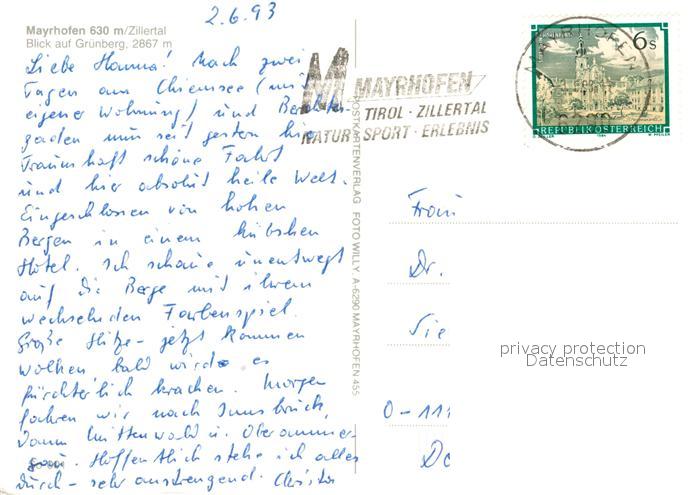 2.6.93
Mayrhofen 630 m/Zillertal
Blick auf Grünberg, 2867 m
Liebe Hanna! Nach zwei
Tagen am Chiemsee (mit
eigener Wohnung) und Berchtes-
gaden nun seit gestern hier.
Traumhaft schöne Fahrt
und hier absolut heile Welt.
Eingeschlossen von hohen
Bergen in einem hübschen
Hotel. Ich schaue unentwegt
auf die Berge mit ihrem
wechselnden Farbenspiel.
Große Hitze - jetzt kommen
Wolken bald wird es
fürchterlich krachen. Morgen
fahren wir nach Innsbruck,
Dann Mittenwald u. Oberammer-
gau. Hoffentlich stehe ich alles
durch - sehr anstrengend. Christa
M MAYRHOFEN
TIROL · ZILLERTAL
NATUR · SPORT · ERLEBNIS
6 S
REPUBLIK ÖSTERREICH
POSTKARTENVERLAG FOTO WILLY, A-6290 MAYRHOFEN 455
Frau
Dr.
0-111
privacy protection
Datenschutz